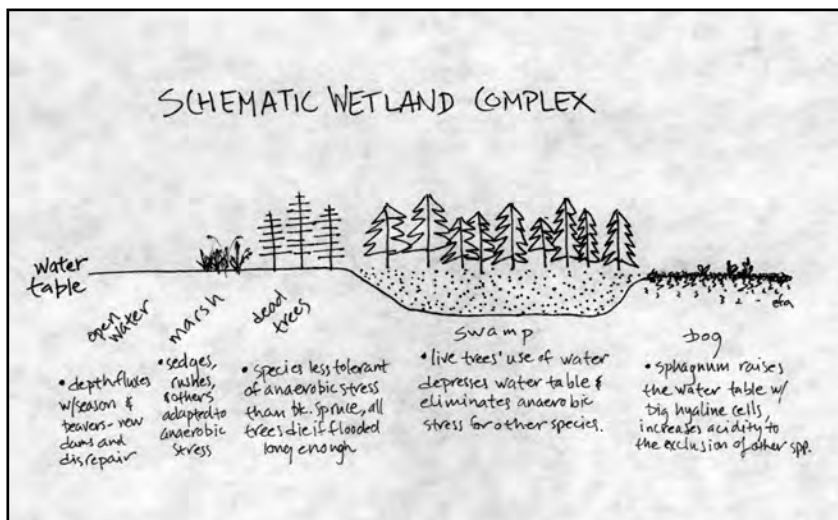 SCHEMATIC WETLAND COMPLEX
water
table
open
water
• depth fluxes
w/season &
beavers - new
dams and
disrepair
marsh
• sedges,
rushes,
& others
adapted to
anaerobic
stress
dead
trees
• species less tolerant
of anaerobic stress
than bk. spruce, all
trees die if flooded
long enough
swamp
• live trees' use of water
depresses water table &
eliminates anaerobic
stress for other species.
bog
• sphagnum raises
the water table w/
big hyaline cells,
increases acidity to
the exclusion of other spp.